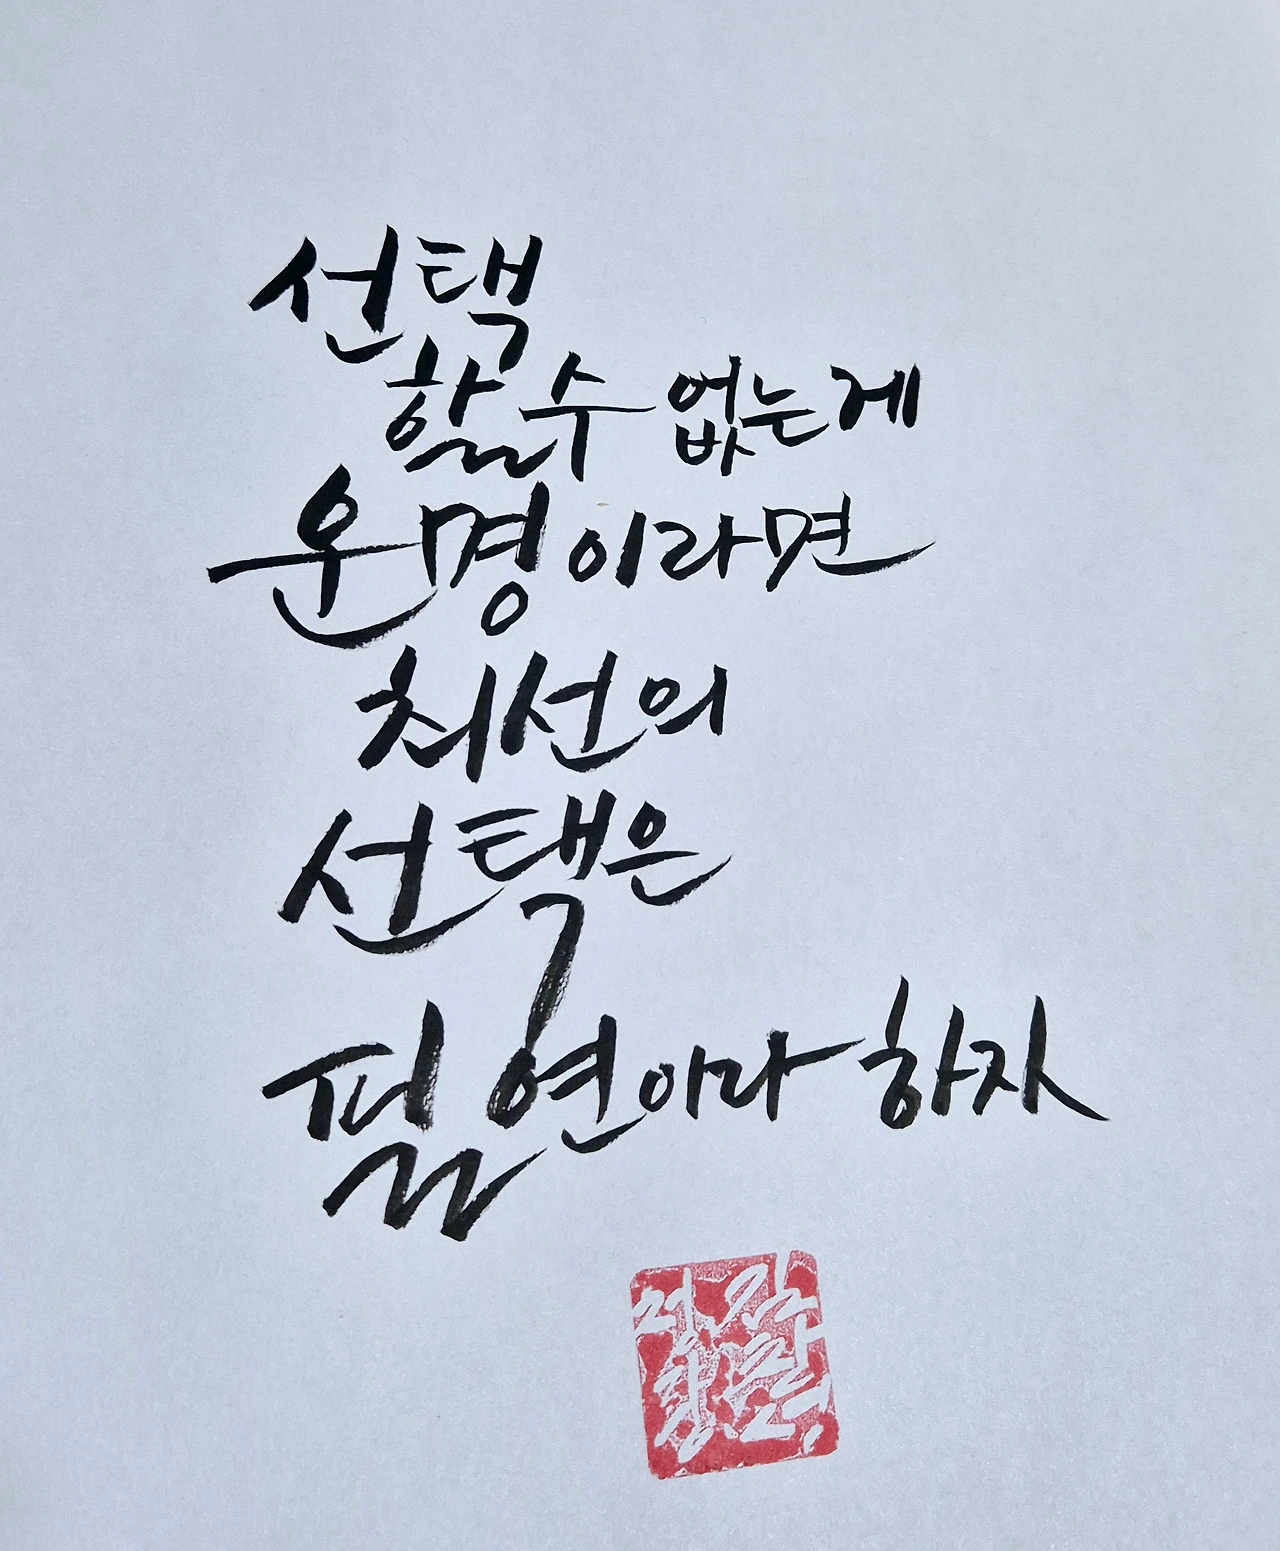 선택
할 수 없는게
운명이라면
최선의
선택은
필연이라 하자